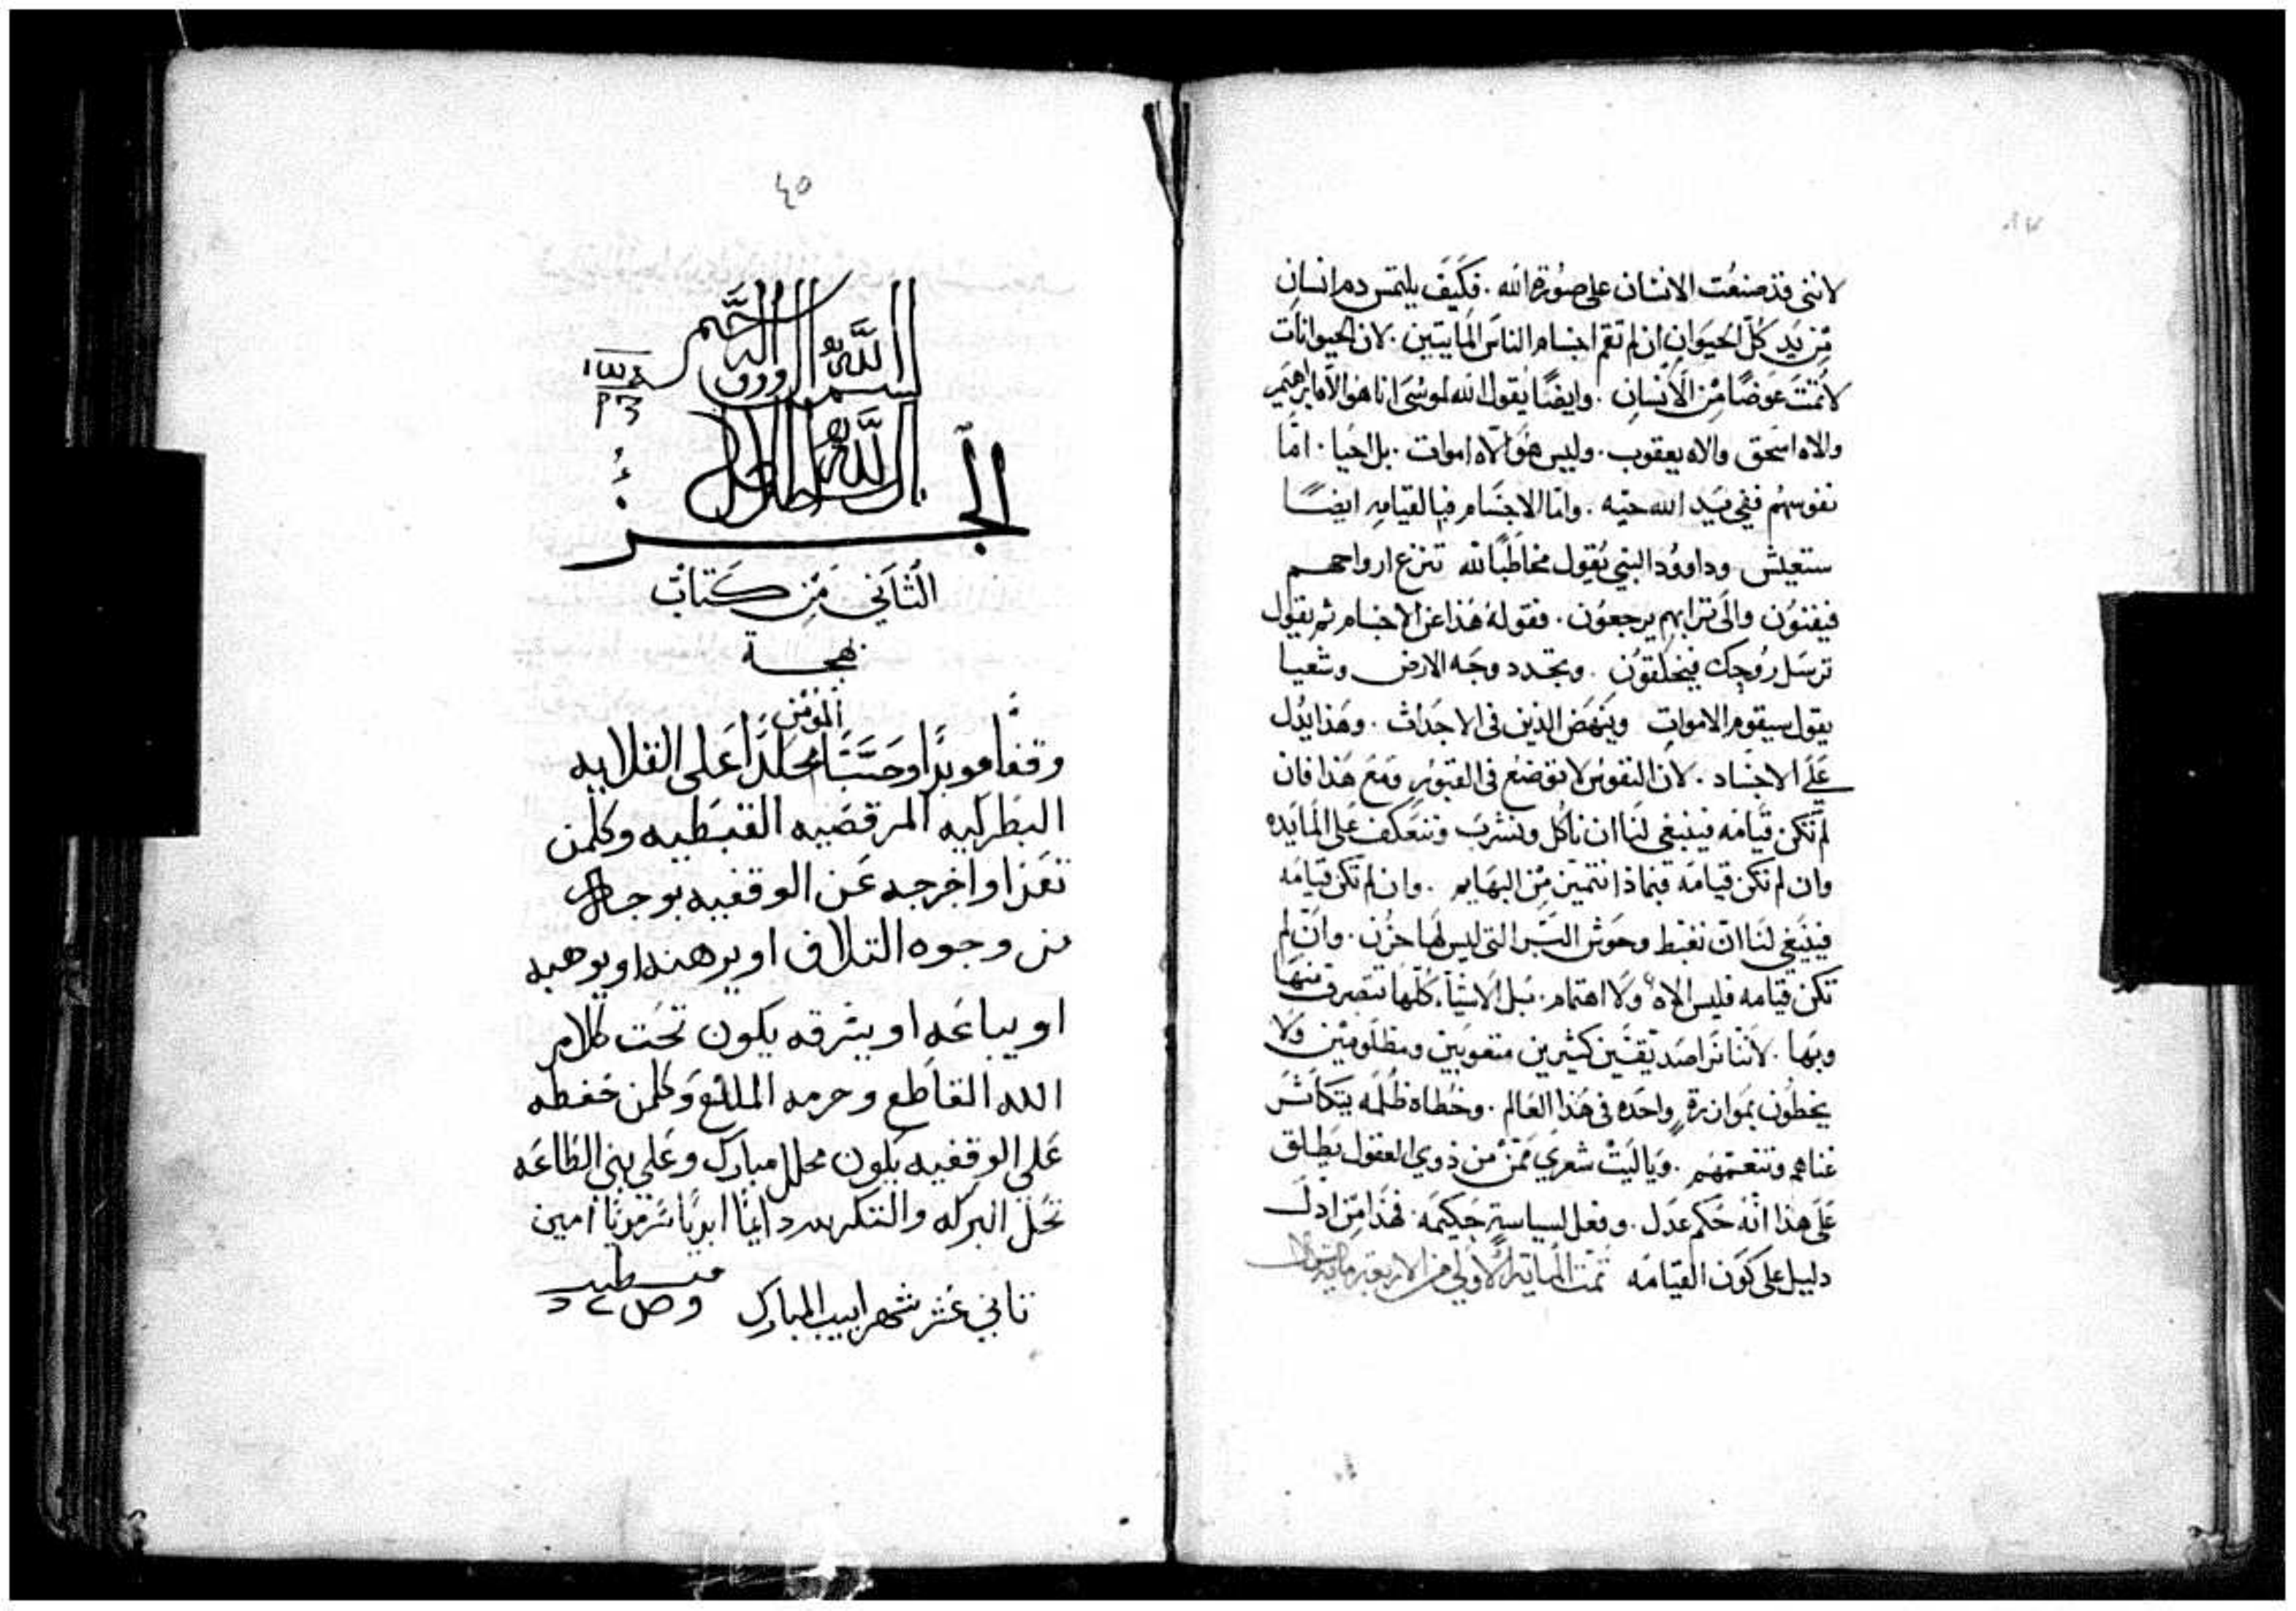 لانني قد صنعت الانسان على صورة الله . فكيف يلتمس دم انسان
من يد كل الحيوان ان لم تقم اجسام الناس المايتين . لان الحيوانات
لا تمت عوضًا من الانسان . وايضًا يقول الله لموسى انا هو الاه ابراهيم
والاه اسحق والاه يعقوب . وليس هو الاه اموات . بل احيا . اما
نفوسهم ففي يد الله حيه . واما الاجسام فبالقيامه ايضًا
ستعيش وداوود النبي يقول مخاطبًا لله تنزع ارواحهم
فيفنون والى ترابهم يرجعون . فقوله هذا عن الاجسام ثم يقول
ترسل روحك فيخلقون . وتجدد وجه الارض وشعيا
يقول سيقوم الاموات وينهض الذين في الاجداث . وهذا يدل
على الاجساد . لان النفوس لا توضع في القبور ومع هذا فان
لم تكن قيامه فينبغي لنا ان ناكل ونشرب ونتعكف على المايده
وان لم تكن قيامه فبماذا نتميز من البهايم . وان لم تكن قيامه
فينبغي لنا ان نغبط وحوش البر التي ليس لها حزن . وان لم
تكن قيامه فليس الاه ولا اهتمام . بل الاشيا كلها تتصرف منها
وبها . لاننا نرا صديقين كثيرين متعوبين ومظلومين ولا
يحظون بموازرة واحده في هذا العالم . وخطاه ظلمه يتكاثر
غناهم وتنعمهم . ويا ليت شعري من من ذوي العقول يطلق
على هذا انه حكم عدل . وفعل لسياسة حكيمه . فهذا من ادل
دليل على كون القيامه تمت الماية الاولى من الاربعة ماية
٤٥
بسم الله الرووف الرحيم
الجزء
الثاني من كتاب
بهجة
المومن
وقفًا موبدًا وحبسًا مخلدًا على القلايه
البطركيه المرقصيه القبطيه وكلمن
تعدا واخرجه عن الوقفيه بوجه
من وجوه التلاف او يرهنه او يوهبه
او يباعه او يشرقه يكون تحت كلام
الله القاطع وحرمه المانع وكلمن حفظه
على الوقفيه يكون محالل مبارك وعلى بني الطاعه
تحل البركه والشكر لله دايمًا ابديًا سرمديًا امين
تاني عشر شهر ابيب المبارك